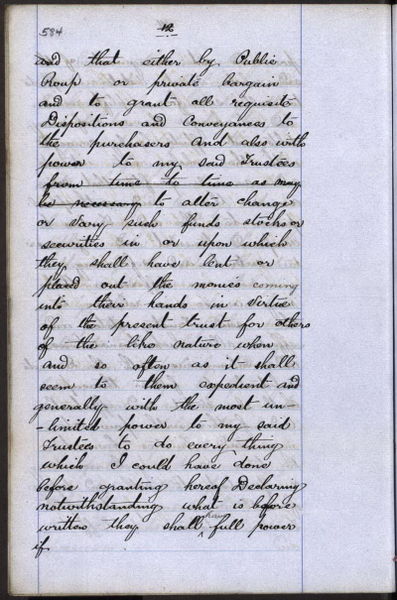 584
12
and that either by Public
Roup or private bargain
and to grant all requisite
Dispositions and Conveyances to
the purchasers and also with
power to my said Trustees
from time to time as may
be necessary to alter change
or vary such funds stocks or
securities in or upon which
they shall have lent or
placed out the monies coming
into their hands in virtue
of the present trust for others
of the like nature when
and so often as it shall
seem to them expedient and
generally with the most un-
-limited power to my said
Trustees to do every thing
which I could have done
before granting hereof Declaring
notwithstanding what is before
written they shall have full power
if